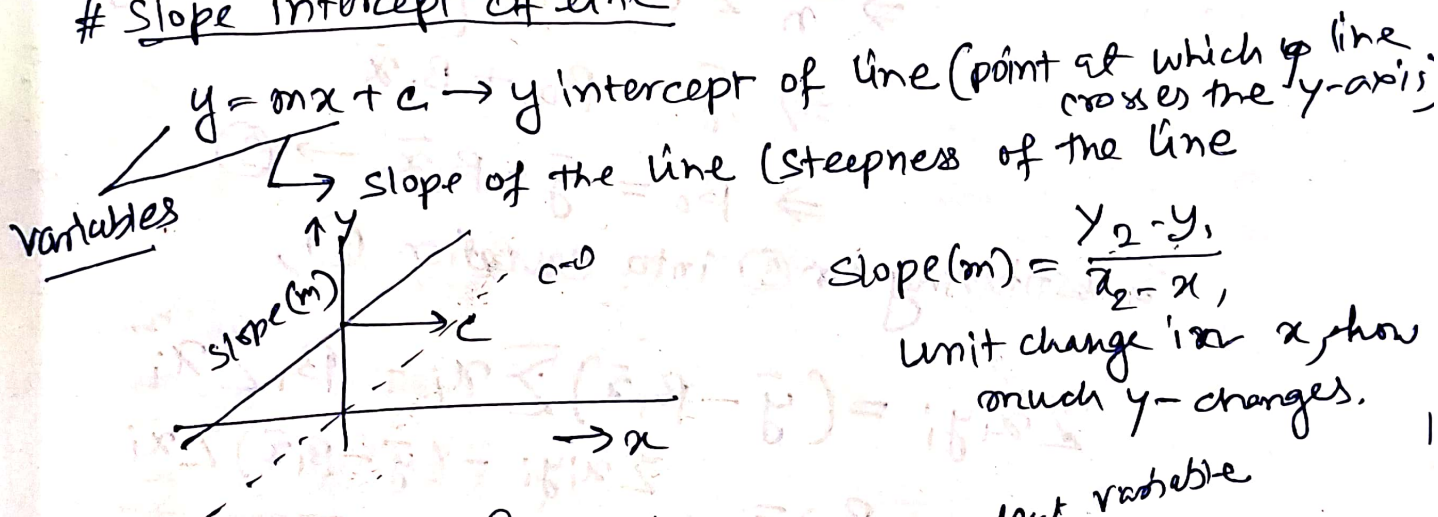 # Slope intercept of line
y = mx + c → y intercept of line (point at which line
crosses the y-axis)
slope of the line (steepness of the line
variables
↑ y
slope (m)
c=0
c
→ x
slope (m) = y2 - y1 / x2 - x1
unit change in x, how
much y- changes.
variable